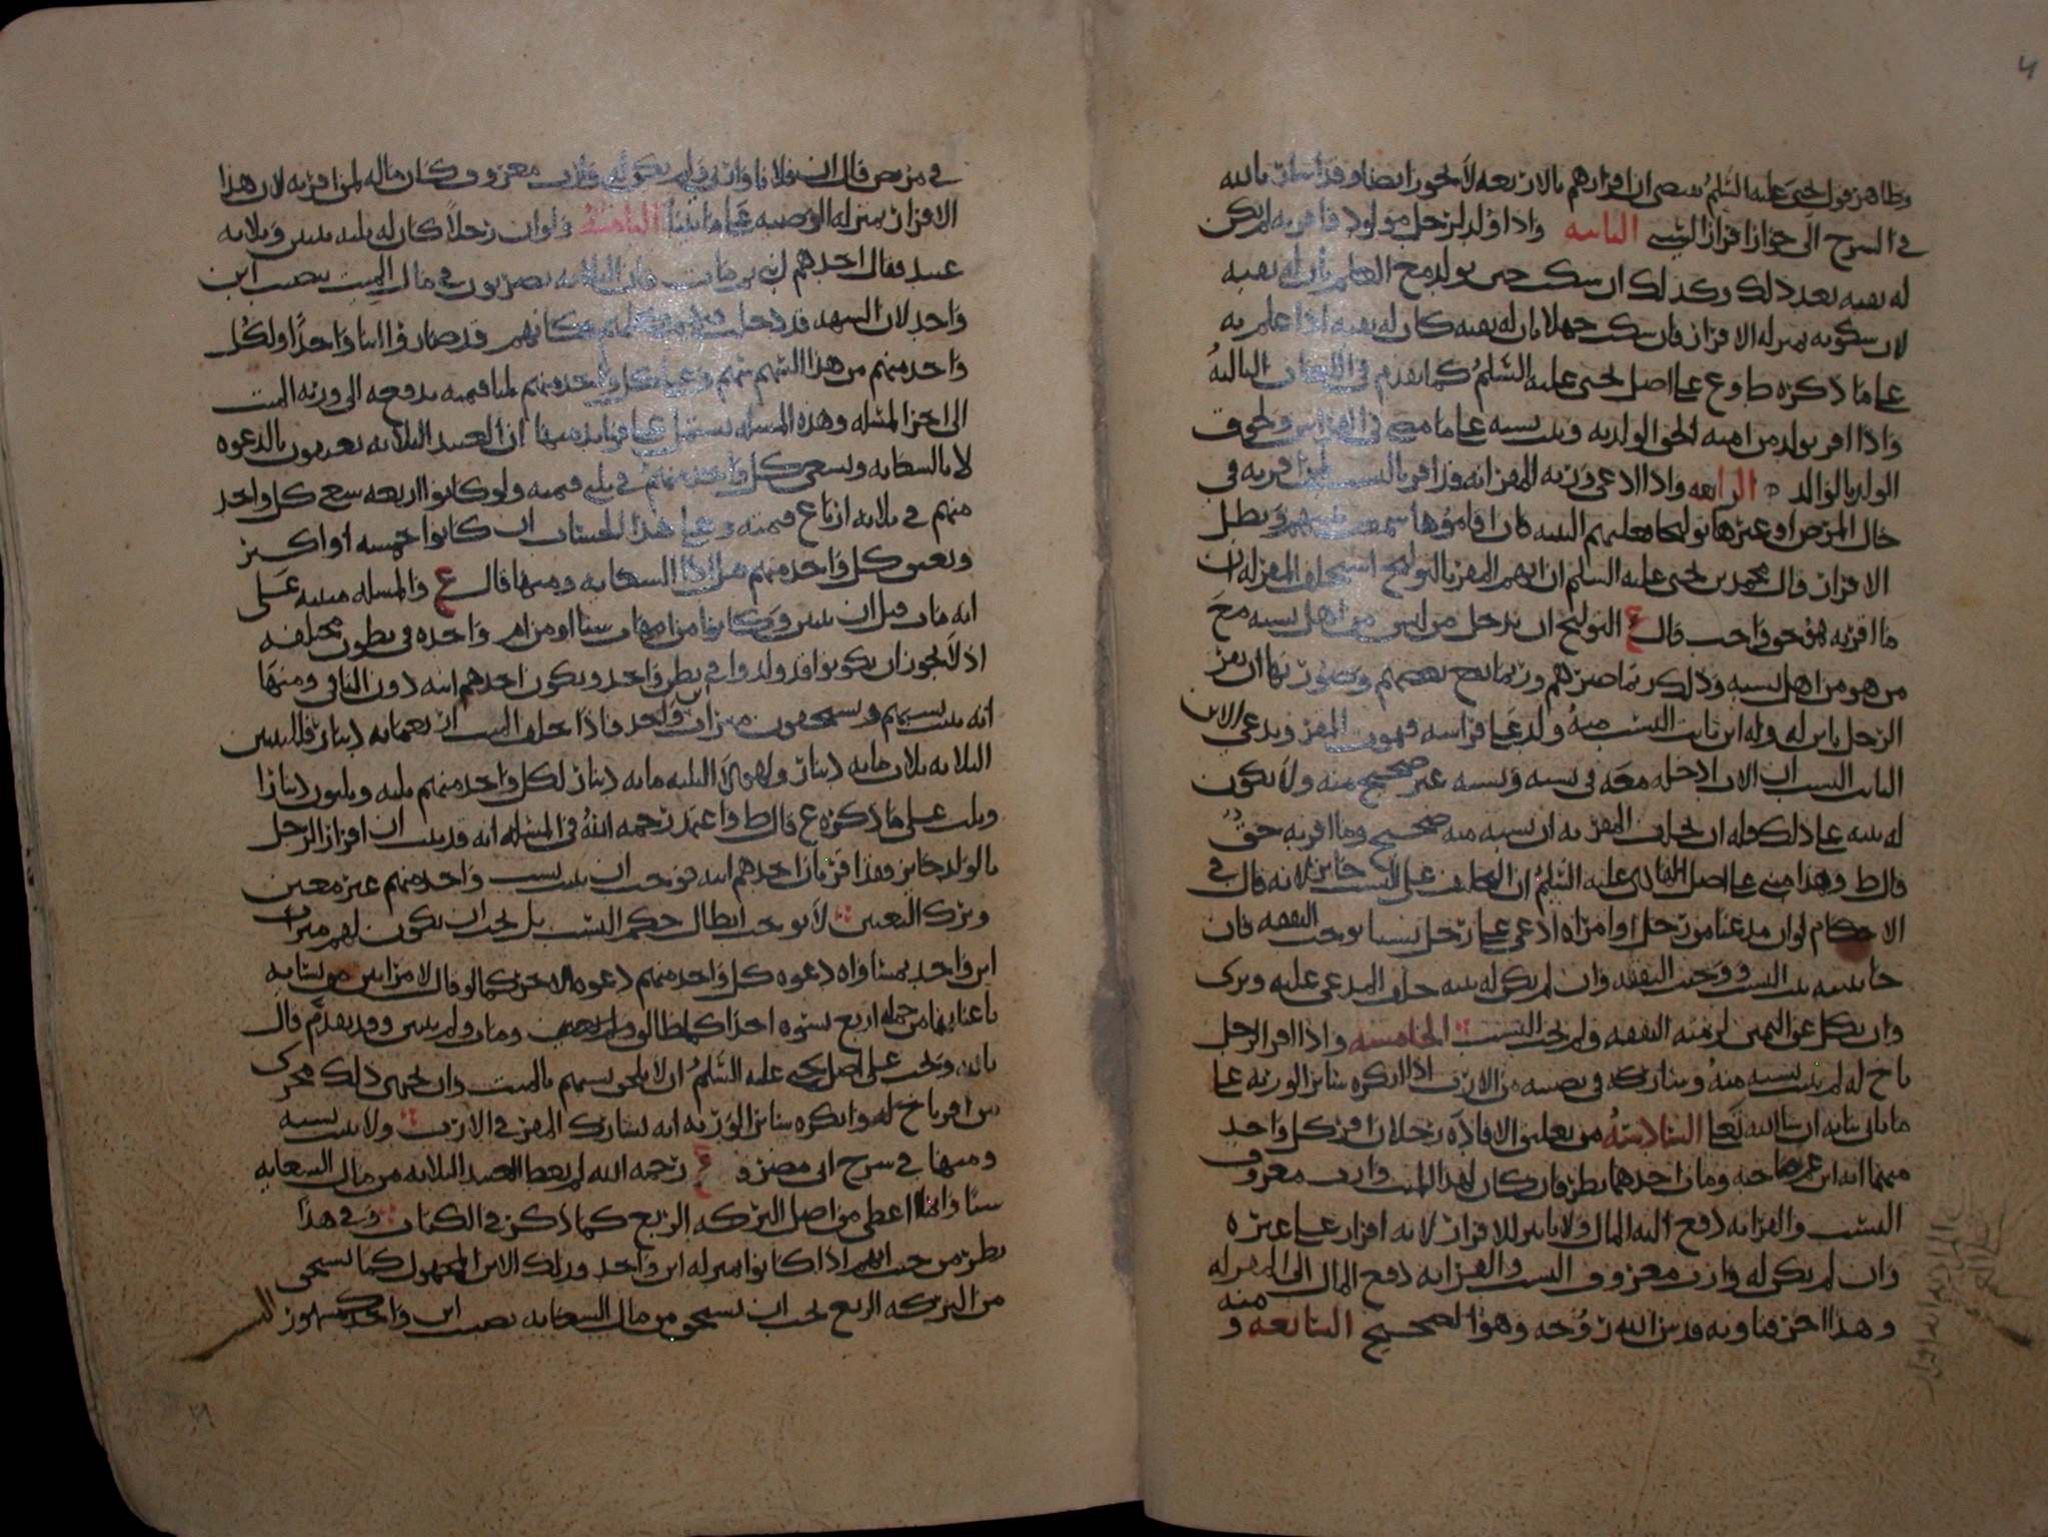 وظاهر قول يحيى عليه السلم يقضي ان اقرارهم بالاربعه لا يجوز ايضا وقد اشار بالله
في الشرح الى جواز اقرار الشي الثانيه واذا ولد لرجل مولود فاقر به لم يكن
له نفيه بعد ذلك وكذلك ان سكت حين يولد مع العلم بان له نفيه
لان سكوته بمنزله الاقرار فان سكت جهلا بان له نفيه كان له نفيه اذا علم به
على ما ذكره ط و ع على اصل يحيى عليه السلم كما تقدم في اللعان الثالثه
واذا اقر بولد من امته لحق الولد به وثبت نسبه على ما مضى في الفراش ولحوق
الولد بالوالد الرابعه واذا ادعى ورثه المقر انه قد اقر بالنسب لمن اقر به في
حال المرض او غيرها توليجا فعليهم البينه فان اقاموها سمعت بينتهم وبطل
الاقرار قال محمد بن يحيى عليه السلم ان اتهم المقر بالتوليج استحلف المقر له ان
ما اقر به له حق واجب قال ع التوليج ان يدخل من ليس من اهل نسبه مع
من هو من اهل نسبه وذلك ربما ضرهم وربما نفع بعضهم وصورتها ان يقر
الرجل بابن له وله ابن ثابت النسب منه ولد على فراشه فيموت المقر ويدعي الابن
الثابت النسب ان الاب ادخله معه في نسبه ونسبه غير صحيح منه ولا يكون
له بينه على ذلك فله ان يحلف المقر به ان نسبه منه صحيح وما اقر به حق
قال ط وهذا مبني على اصل الهادي عليه السلم ان التحليف على النسب جائز لانه قال في
الاحكام لو ان مدعيا من رجل او امراه ادعى على رجل نسبا يوجب النفقه فان
جا ببينه ثبت النسب ووجبت النفقه وان لم يكن له بينه حلف المدعى عليه وبرى
وان نكل عن اليمين لزمته النفقه ولم يجب النسب الخامسه واذا اقر الرجل
باخ له لم يثبت نسبه منه وشاركه في نصيبه من الارث اذا انكره سائر الورثه على
ما ياتي بيانه ان شا الله تعا السادسه من تعليق الافاده رجلان اقر كل واحد
منهما انه ابن عم صاحبه ومات احدهما نظر فان كان لهذا الميت وارث معروف
النسب والقرابه دفع اليه المال ولا تاثير للاقرار لانه اقرار على غيره
وان لم يكن له وارث معروف النسب والقرابه دفع المال الى المقر له
وهذا اخر فتاويه قدس الله روحه وهو الصحيح السابعه و منه
في مريض قال ان فلانا وارثي ولم يكن له وارث معروف وكان ماله لمن اقر به لان هذا
الاقرار بمنزله الوصيه على ما بينا الثامنه ولو ان رجلا كان له ثلثه بنين وثلاثه
عبيد فقال احدهم ابني ثم مات فان الثلاثه يضربون في مال الميت بنصيب ابن
واحد لان الشبهه قد دخلت فيهم كلهم فكانهم قد صاروا ابنا واحدا ولكل
واحد منهم من هذا السهم سهم وعلى كل واحد منهم ثلثا قيمته يدفعه الى ورثه الميت
الى اخر المسله وهذه المسله تشتمل على فوايد منها ان العبيد الثلاثه يعتقون بالدعوه
لا بالسعايه ويسعى كل واحد منهم في ثلثي قيمته ولو كانوا اربعه سعى كل واحد
منهم في ثلاثه ارباع قيمته وعلى هذا الحساب ان كانوا خمسه او اكثر
ويعتق كل واحد منهم قبل ادا السعايه ومنها قال ع والمسله مبنيه على
انه مات قبل ان يبين وكانوا من امهات شتا او من ام واحده في بطون مختلفه
اذ لا يجوز ان يكونوا قد ولدوا في بطن واحد ويكون احدهم ابنه دون الباقي ومنها
انه يثبت نسبهم ويستحقون ميراث واحد فاذا خلف الميت اربعمائه دينار فللبنين
الثلاثه ثلاث مائه دينار ولهولا الثلثه مايه دينار لكل واحد منهم ثلثه وثلثون دينارا
وثلث على ما ذكره ع قال ط واعتمد رحمه الله في المسله انه قد ثبت ان اقرار الرجل
بالولد جائز فقد اقر بان احدهم ابنه فوجب ان يثبت نسب واحد منهم غير معين
وترك التعيين لا يوجب ابطال حكم النسب بل يجب ان يكون لهم ميراث
ابن واحد لمساواه دعوه كل واحد منهم دعوه الاخر كما لو قال لامراتين
باعيانهما من جمله اربع نسوه احداكما طالق ومات ولم يبين وقد تقدم قال
بالله ويجب على اصل يحيى عليه السلم ان لا يلحق نسبهم بالميت وان يجري ذلك مجرى
من اقر باخ له وانكره سائر الورثه انه يشارك المقر في الارث ولا يثبت نسبه
ومنها في شرح ابي مضر و ع رحمه الله لم يعط العبيد الثلاثه من مال السعايه
شيا وانما اعطى من اصل التركه الربع كما ذكر في الكتاب وفي هذا
نظر من حيث انهم اذا كانوا بمنزله ابن واحد وذلك الابن المجهول كما يستحق
من التركه الربع يجب ان يستحق من مال السعايه نصيب ابن واحد